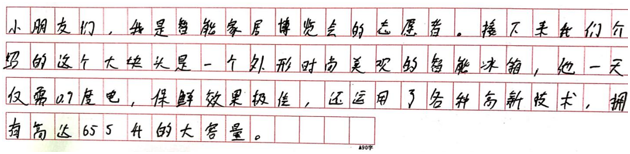 小朋友们，我是智能家居博览会的志愿者。接下来我们介
绍的这个大块头是一个外形时尚美观的智能冰箱，他一天
仅需0.9度电，保鲜效果极佳，还运用了各种高新技术，拥
有高达655升的大容量。